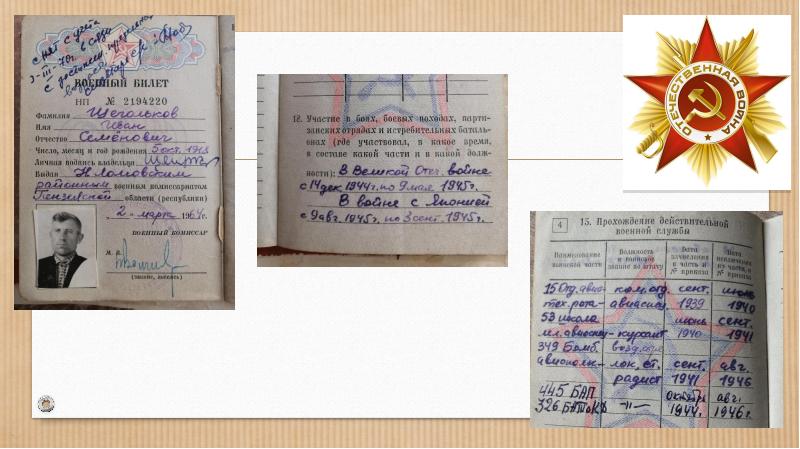 снят с учета
3-III-70г. в связи
с достижен. предельного
возраста
ВОЕННЫЙ БИЛЕТ
НП № 2194220
Фамилия Щегольков
Имя Иван
Отчество Семёнович
Число, месяц и год рождения 5 окт. 1918
Личная подпись владельца
Выдан Н Ломовским
районным военным комиссариатом
Пензенской области (республики)
2 марта 196 г.
ВОЕННЫЙ КОМИССАР
М. П.
(звание, подпись)
12. Участие в боях, боевых походах, парти-
занских отрядах и истребительных баталь-
онах (где участвовал, в какое время,
в составе какой части и в какой долж-
ности): В Великой Отеч. войне
с 14 дек 1944г. по 9 мая 1945г.
В войне с Японией
с 9 авг. 1945г. по 3 сент. 1945г.
ОТЕЧЕСТВЕННАЯ ВОЙНА
4 15. Прохождение действительной
военной службы
Наименование воинской части
Должность и воинское звание по штату
Дата зачисления в часть и № приказа
Дата исключения из части и № приказа
15 Отд. авиа- ком. отд. сент. июнь
тех. рота- авиаспец 1939 1940
53 школа июнь сент.
мл. авиаспец- курсант 1940 1941
349 Бомб.
авиаполк- ст. сент. авг.
радист 1941 1946
445 БАП октябрь авг.
326 -"- 1944. 1946г.